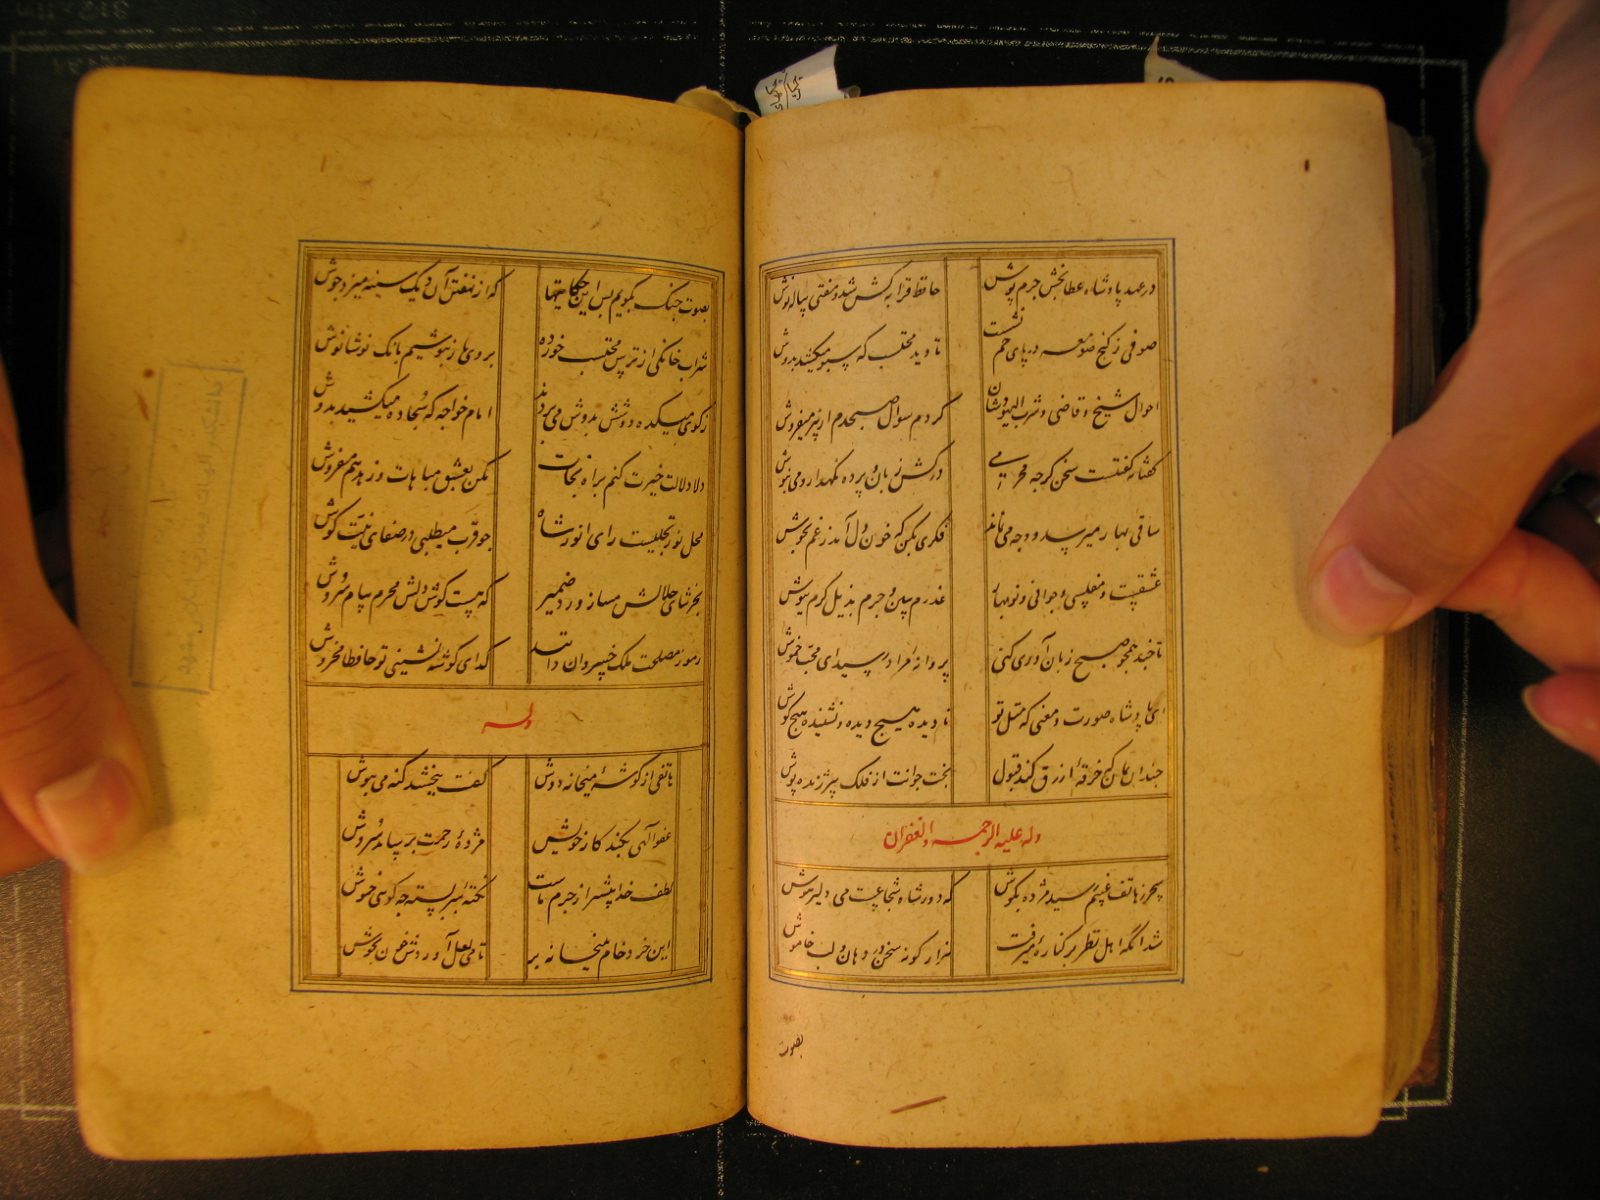 در عهد پادشاه عطابخش جرم پوش حافظ قرابه کش شد و مفتی پیاله نوش
صوفی ز کنج صومعه در پای خم نشست تا دید محتسب که سبو میکشد بدوش
احوال شیخ و قاضی و شرب الیهودشان کردم سوال صبحدم از پیر میفروش
گفتا نه گفتنیست سخن گرچه محرمی درکش زبان و پرده نگهدار و می بنوش
ساقی بهار میرسد و وجه می نماند فکری بکن که خون دل آمد ز غم بجوش
عشقست و مفلسی و جوانی و نوبهار عذرم ببین و جرم بذیل کرم بپوش
تا چند همچو صبح زبان آوری کنی پروانه مراد رسید ای محب خموش
ای پادشاه صورت و معنی که مثل تو نادیده هیچ دیده و نشنیده هیچ گوش
چندان بمان که خرقه ازرق کند قبول بخت جوانت از فلک پیر ژنده پوش
وله علیه الرحمه و الغفران
سحر ز هاتف غیبم رسید مژده بگوش که دور شاه شجاعست می دلیر بنوش
شد آنکه اهل نظر بر کناره میرفت هزار گونه سخن در دهان و لب خاموش
بصوت
بصوت چنگ بگویم بس این حکایتها که از نهفتن آن دیک سینه میزد جوش
شراب خانگی از ترس محتسب خورده بروی یار بنوشیم بانک نوشانوش
ز کوی میکده دوشش بدوش می بردند امام خواجه که سجاده میکشید بدوش
دلا دلالت خیرت کنم براه نجات مکن بعشق مباهات و زهد هم مفروش
محل نور تجلیست رای انور شاه چو قرب میطلبی در صفای نیت کوش
بجز ثنای جلالش مساز ورد ضمیر که هست گوش دلش محرم پیام سروش
رموز مصلحت ملک خسروان دانند کدای گوشه نشینی تو حافظا مخروش
وله
هاتفی از گوشه میخانه دوش گفت ببخشند گنه می بنوش
عفو الهی بکند کار خویش مژده رحمت برساند سروش
لطف خدا بیشتر از جرم ماست نکته سربسته چه گوئی خموش
این خرد خام بمیخانه بر تا می لعل آوردش خون بجوش